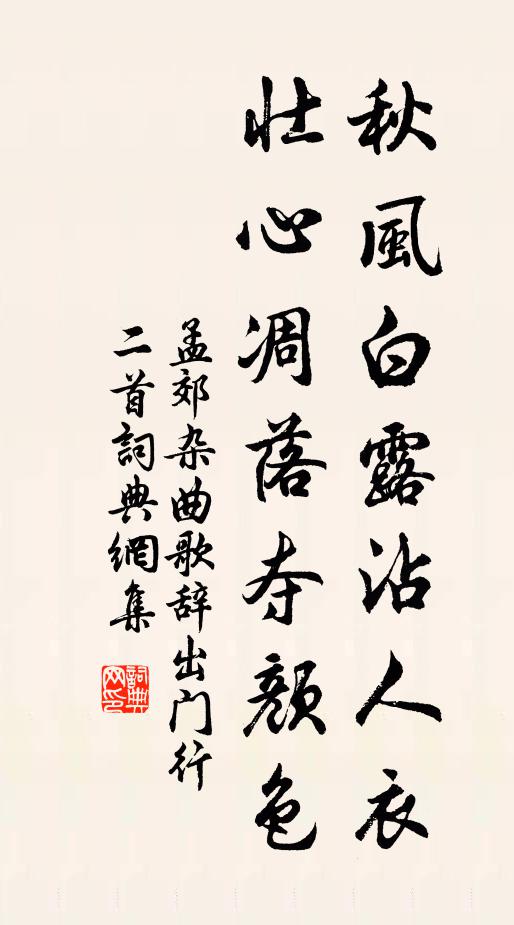 秋風白露沾人衣
壮心凋落夺顏色
孟郊杂曲歌辞出门行
二首詞典網集
詞典网印